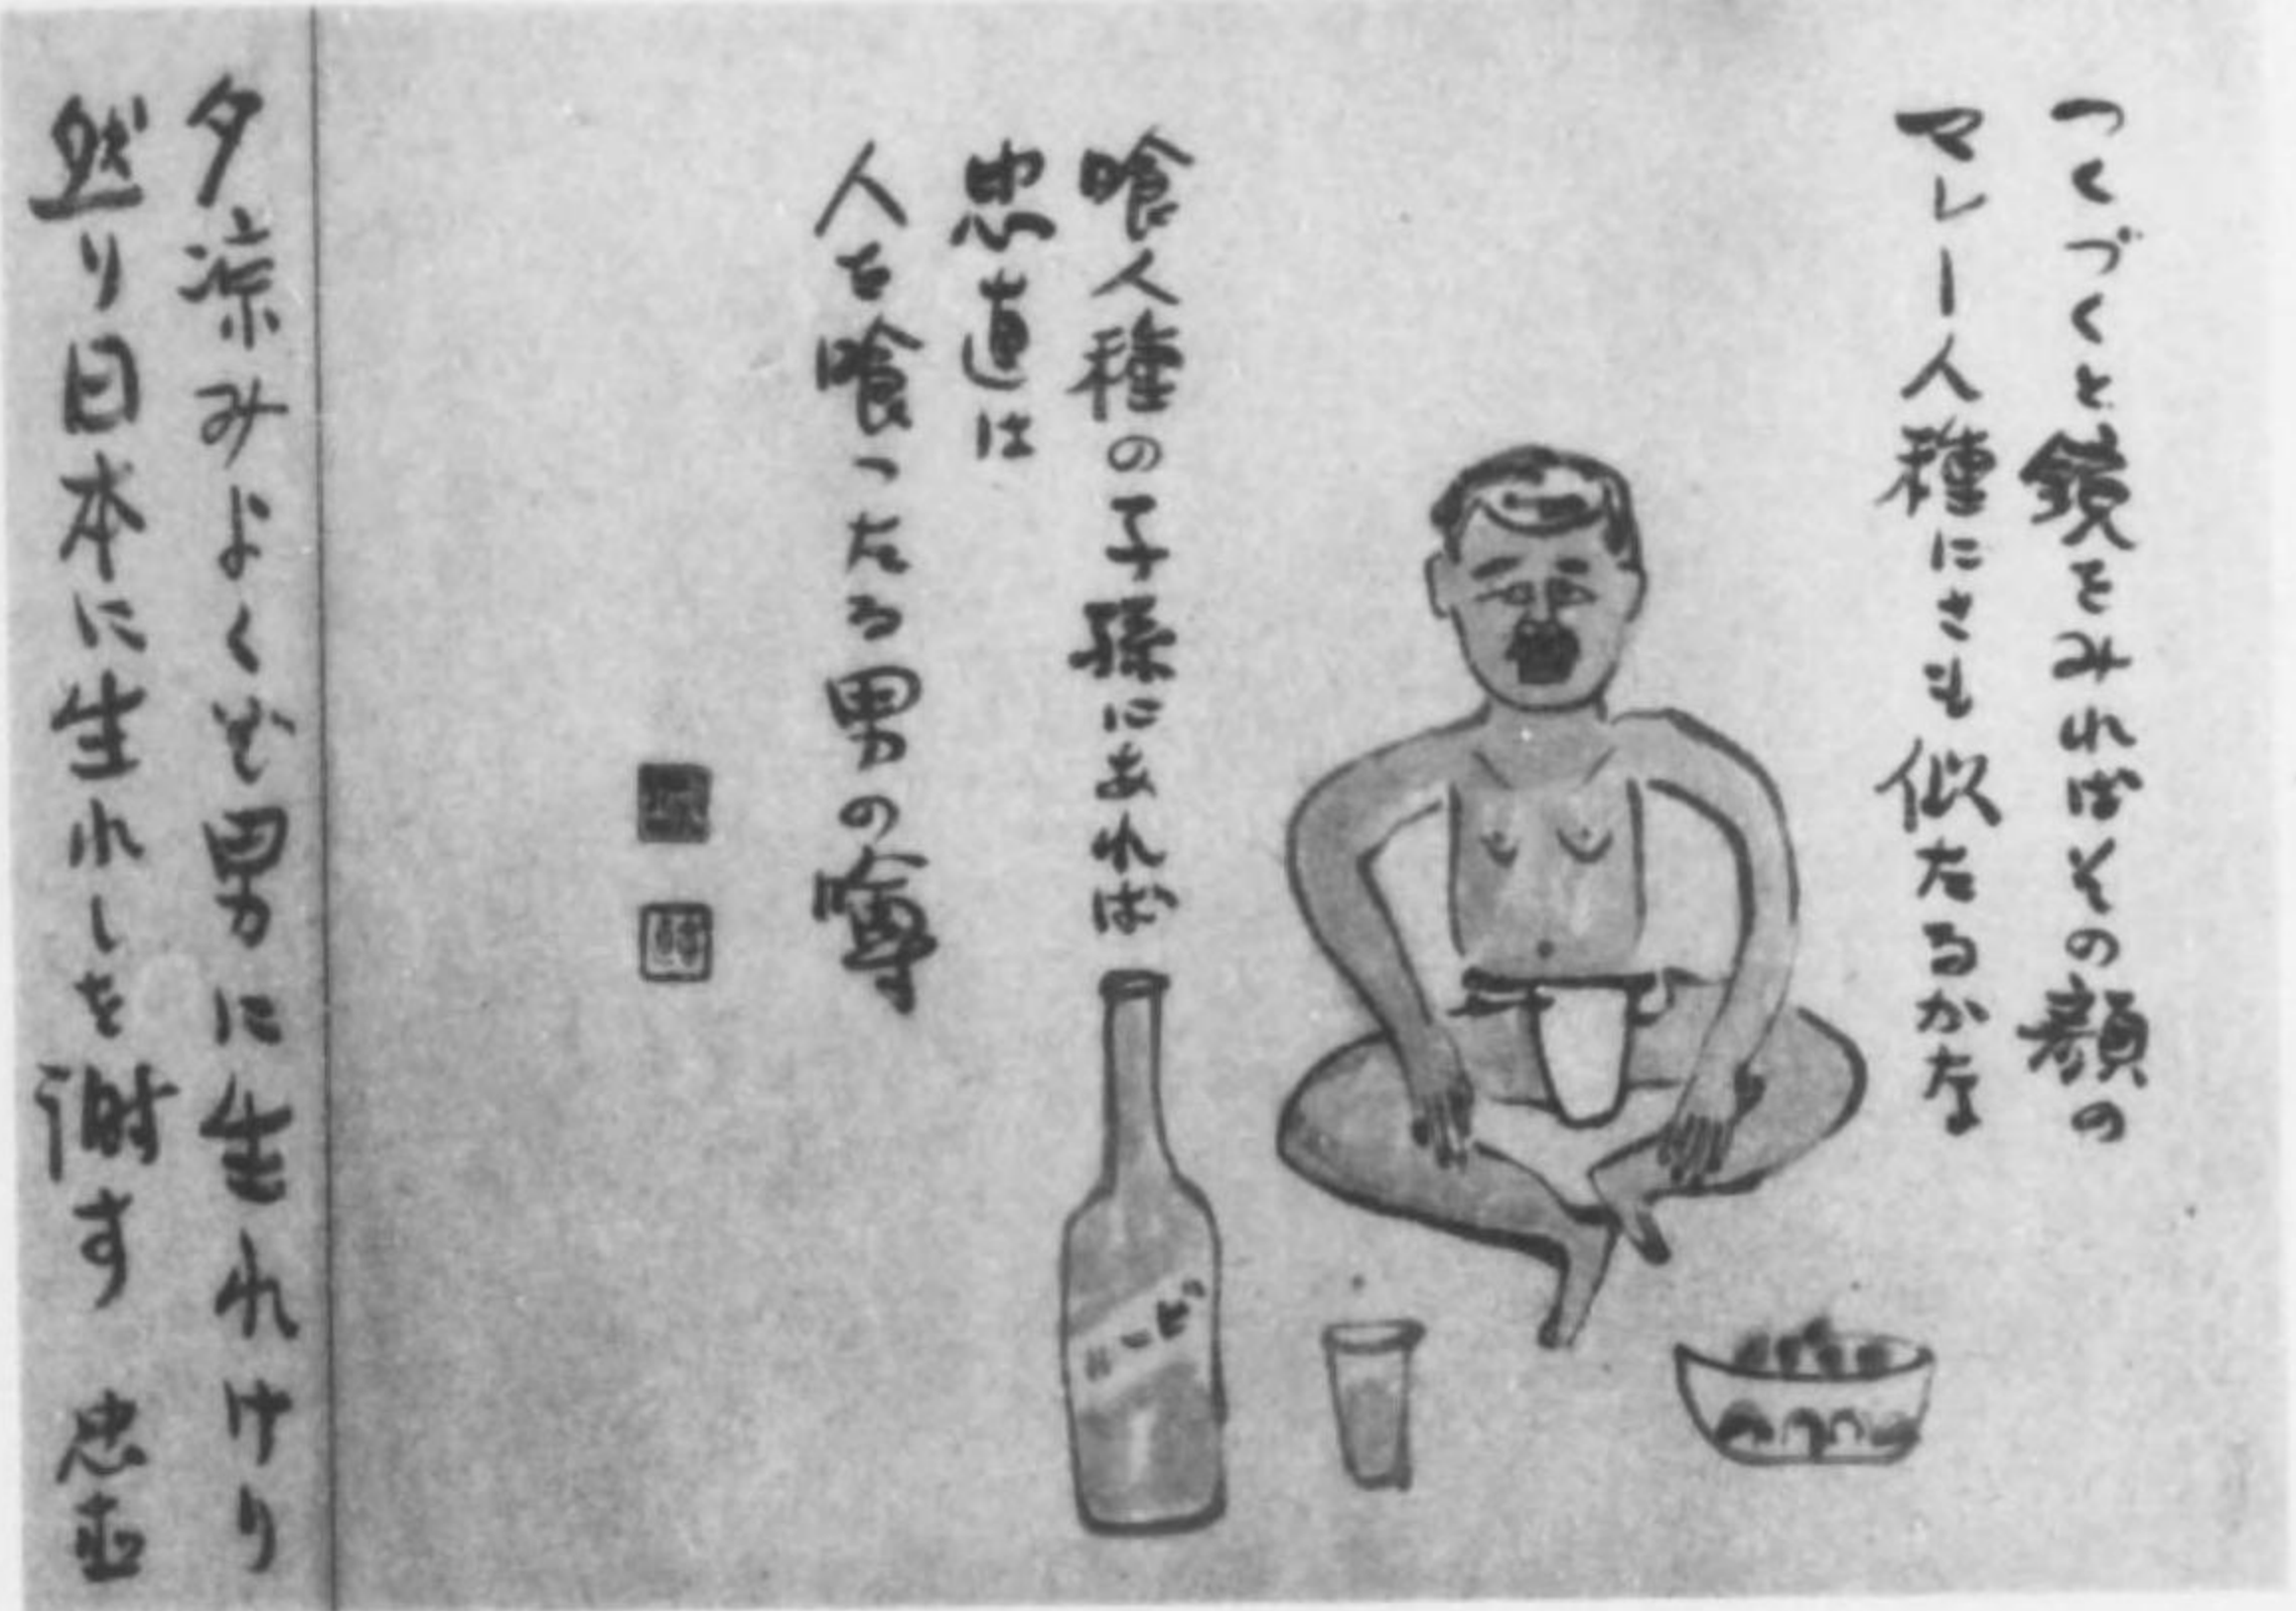 つくづくと鏡をみればその顔の
マレー人種にさも似たるかな
喰人種の子孫にあれば
忠直は
人を喰つたる男の噂
ビール
夕涼みよくぞ男に生れけり
然り日本に生れしを謝す 忠直